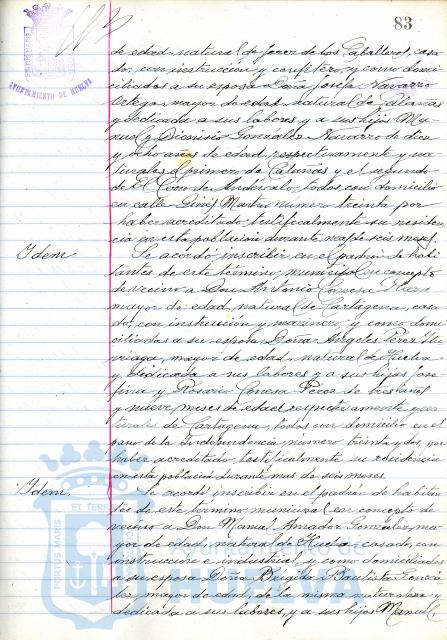 83
AYUNTAMIENTO DE HUELVA
de edad natural de Jerez de los Caballeros, casa
do, con instrucción y confitero, y como domi
ciliados a su esposa Doña Josefa Navarro
Ortega mayor de edad natural de Calañas
y dedicada a sus labores y a sus hijos Ma
nuel y Dionisio Gonzalez Navarro de diez
y ocho años de edad respectivamente y na
turales el primero de Calañas y el segundo
de El Cerro de Andévalo, todos con domicilio
en calle Ginés Martín número treinta por
haber acreditado testificalmente su residen
cia en esta población durante mas de seis meses.
Idem
Se acordó inscribir en el padrón de habi
tantes de este término municipal en concepto
de vecino a Don Antonio Conesa
mayor de edad, natural de Cartagena, casa
do, con instrucción y marinero, y como domi
ciliados a su esposa Doña Angeles Pérez
mayor de edad, natural de Huelva
y dedicada a sus labores y a sus hijos Jose
fina y Rosario Conesa Pérez de tres años
y nueve meses de edad respectivamente y na
turales de Cartagena, todos con domicilio en el
paseo de la Independencia número treinta y dos, por
haber acreditado testificalmente su residencia
en esta población durante mas de seis meses.
Idem.
Se acordó inscribir en el padrón de habitan
tes de este término municipal en concepto de
vecino a Don Manuel Amador Gonzalez, ma
yor de edad, natural de Huelva, casado, con
instrucción e industrial, y como domiciliados
a su esposa Doña Brigida Bautista Gonza
lez, mayor de edad, de la misma naturaleza y
dedicada a sus labores, y a sus hijos Manuel,
PORTUS MARIS
ET TERRAE
Ayuntamiento de